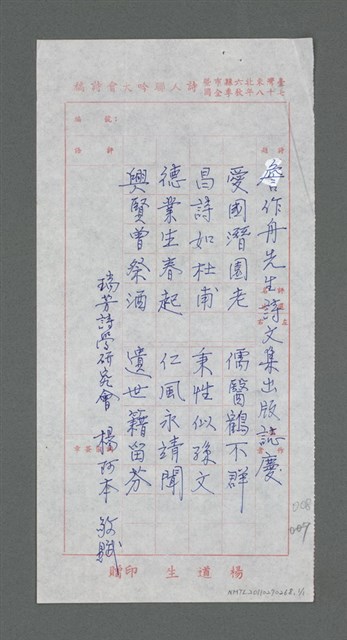 臺灣東北六縣市暨
七十八年秋季全國
詩人聯吟大會詩箋
編號：
詩題
詹作舟先生詩文集出版誌慶
愛國潛園老 儒醫鶴不群
昌詩如杜甫 秉性似孫文
德業生春起 仁風永靖聞
興賢曾祭酒 遺世籍留芬
瑞芳詩學研究會 楊阿本 敬賦
楊道生 印贈
008
007
AM72_20110290268_1/1